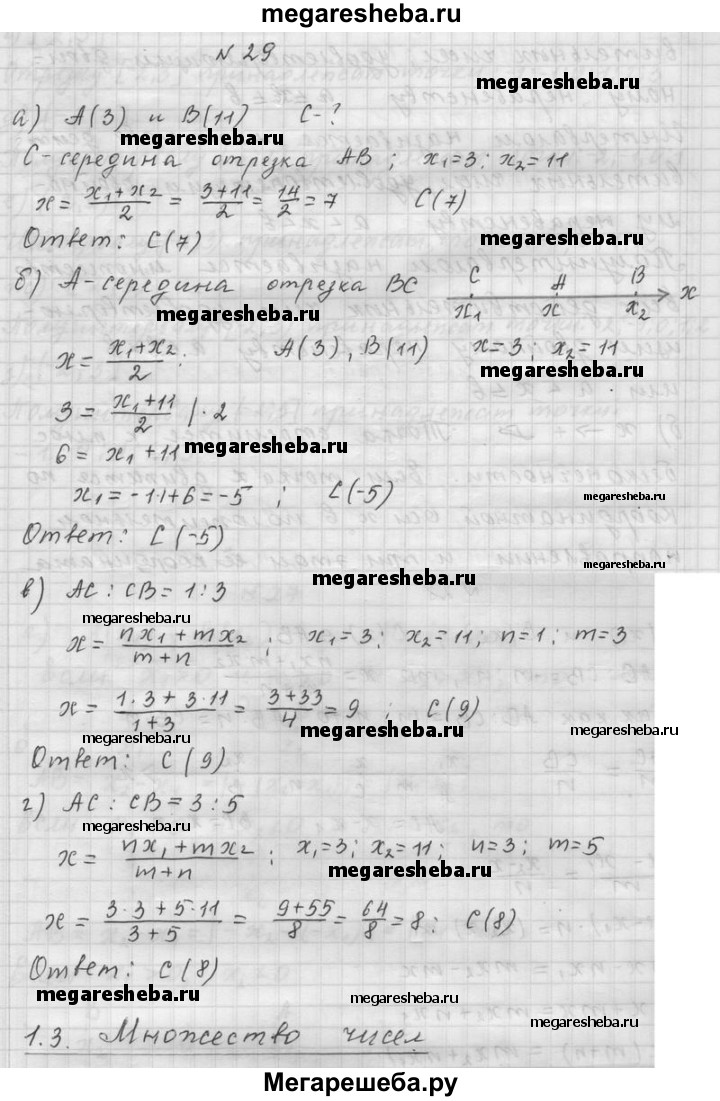 megaresheba.ru
№ 29
megaresheba.ru
а) A(3) и B(11) C-?
megaresheba.ru
C-середина отрезка AB ; x₁=3; x₂=11
x = (x₁+x₂)/2 = (3+11)/2 = 14/2 = 7 C(7)
Ответ: C(7)
megaresheba.ru
б) A-середина отрезка BC
C A B x
x₁ x x₂
megaresheba.ru
x = (x₁+x₂)/2; A(3), B(11) x=3; x₂=11
megaresheba.ru
3 = (x₁+11)/2 |·2
6 = x₁+11
megaresheba.ru
x₁=-11+6=-5 ; C(-5)
megaresheba.ru
Ответ: C(-5)
megaresheba.ru
megaresheba.ru
в) AC : CB = 1:3
megaresheba.ru
megaresheba.ru
x = (nx₁+mx₂)/(m+n) ; x₁=3; x₂=11; n=1; m=3
x = (1·3+3·11)/(1+3) = (3+33)/4 = 9 ; C(9)
megaresheba.ru
megaresheba.ru
Ответ: C(9)
г) AC : CB = 3:5
megaresheba.ru
x = (nx₁+mx₂)/(m+n) ; x₁=3; x₂=11; n=3; m=5
megaresheba.ru
x = (3·3+5·11)/(3+5) = (9+55)/8 = 64/8 = 8; C(8)
Ответ: C(8)
megaresheba.ru
megaresheba.ru
megaresheba.ru
1.3. Множество чисел
megaresheba.ru
Мегарешеба.ру